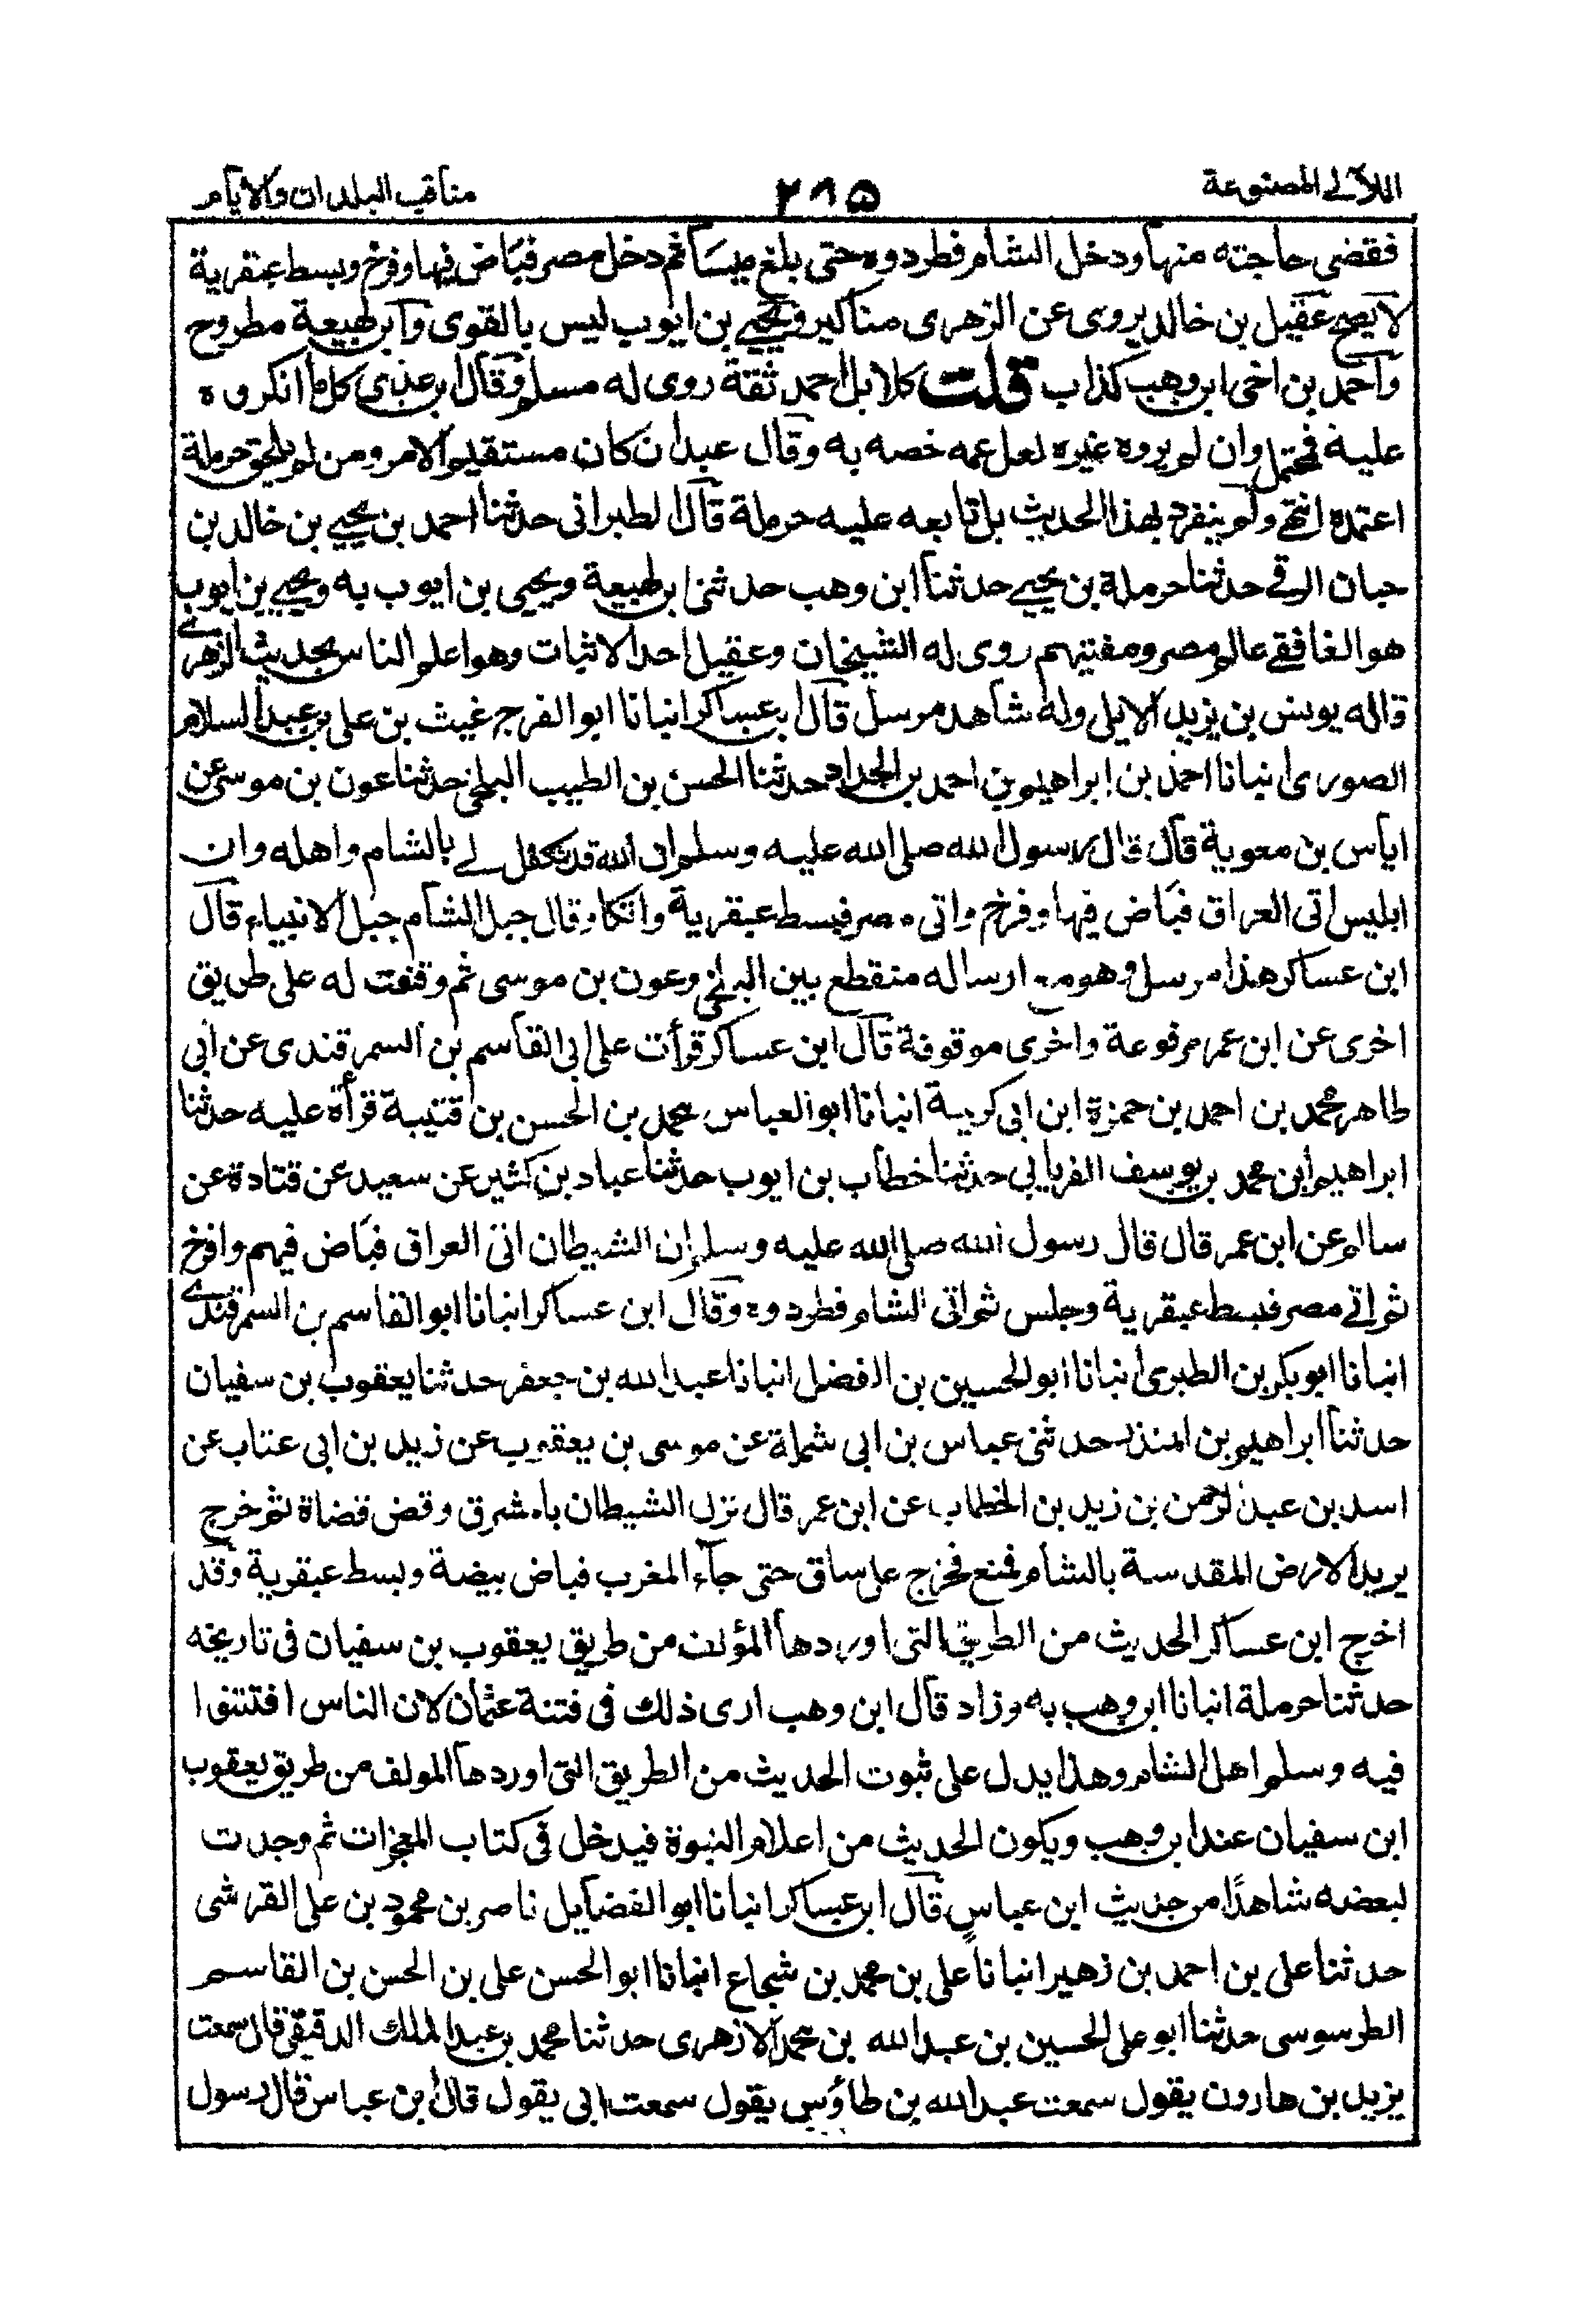 اللآلى المصنوعة
٢٨٥
مناقب البلدان والايام
فقضى حاجته منها ودخل الشام فطردوه حتى بلغ ميسا ثم دخل مصر فباض فيها وفرخ وبسط عبقرية
لا يصح عقيل بن خالد يروى عن الزهرى مناكير ويحيى بن ايوب ليس بالقوى وابن لهيعة مطروح
واحمد بن اخى ابن وهب كذاب قلت كلا بل احمد ثقة روى له مسلم وقال ابن عدى كل ما انكروه
عليه فمحتمل وان لم يروه غيره لعل عمه خصه به وقال عبدان كان مستقيم الامر ومن لم يلحق حرملة
اعتمده انتهى ولم ينفرد بهذا الحديث بل تابعه عليه حرملة قال الطبرانى حدثنا احمد بن يحيى بن خالد بن
حبان الرقى حدثنا حرملة بن يحيى حدثنا ابن وهب حدثنى ابن لهيعة ويحيى بن ايوب به ويحيى بن ايوب
هو الغافقى عالم مصر ومفتيهم روى له الشيخان وعقيل احد الاثبات وهو اعلم الناس بحديث الزهرى
قاله يونس بن يزيد الايلى وله شاهد مرسل قال ابن عساكر انبانا ابو الفرج غيث بن على بن عبد السلام
الصورى انبانا احمد بن ابراهيم بن احمد بن الحداد حدثنا الحسن بن الطيب البلخى حدثنا عون بن موسى عن
اياس بن معوية قال قال رسول الله صلى الله عليه وسلم ان الله قد تكفل لى بالشام واهله وان
ابليس اتى العراق فباض فيها وفرخ واتى مصر فبسط عبقرية واتكا وقال جبل الشام جبل الانبياء قال
ابن عساكر هذا مرسل وهو مع ارساله منقطع بين البلخى وعون بن موسى ثم وقفت له على طريق
اخرى عن ابن عمر مرفوعة واخرى موقوفة قال ابن عساكر قرأت على ابى القاسم بن السمرقندى عن ابى
طاهر محمد بن احمد بن حمزة ابن ابى كريمة انبانا ابو العباس محمد بن الحسن بن قتيبة قرأة عليه حدثنا
ابراهيم ابن محمد بن يوسف الفريابى حدثنا خطاب بن ايوب حدثنا عباد بن كثير عن سعيد عن قتادة عن
سالم عن ابن عمر قال قال رسول الله صلى الله عليه وسلم ان الشيطان اتى العراق فباض فيهم وافرخ
ثم اتى مصر فبسط عبقرية وجلس ثم اتى الشام فطردوه وقال ابن عساكر انبانا ابو القاسم بن السمرقندى
انبانا ابو بكر بن الطبرى انبانا ابو الحسين بن الفضل انبانا عبد الله بن جعفر حدثنا يعقوب بن سفيان
حدثنا ابراهيم بن المنذر حدثنى عباس بن ابى شملة عن موسى بن يعقوب عن زيد بن ابى عتاب عن
اسد بن عبد الرحمن بن زيد بن الخطاب عن ابن عمر قال نزل الشيطان بالمشرق وقض قضاة ثم خرج
يريد الارض المقدسة بالشام فمنع فخرج على ساق حتى جاء المغرب فباض بيضة وبسط عبقرية وقد
اخرج ابن عساكر الحديث من الطريق التى اوردها المؤلف من طريق يعقوب بن سفيان فى تاريخه
حدثنا حرملة انبانا ابن وهب به وزاد قال ابن وهب ارى ذلك فى فتنة عثمان لان الناس افتتنوا
فيه وسلم اهل الشام وهذا يدل على ثبوت الحديث من الطريق التى اوردها المولف من طريق يعقوب
ابن سفيان عند ابن وهب ويكون الحديث من اعلام النبوة فيدخل فى كتاب المعجزات ثم وجدت
لبعضه شاهدًا من حديث ابن عباسٍ قال ابن عساكر انبانا ابو الفضايل ناصر بن محمود بن على القرشى
حدثنا على بن احمد بن زهير انبانا على بن محمد بن شجاع انبانا ابو الحسن على بن الحسن بن القاسم
الطرسوسى حدثنا ابو على الحسين بن عبد الله بن محمد الازهرى حدثنا محمد بن عبد الملك الدقيقى قال سمعت
يزيد بن هارون يقول سمعت عبد الله بن طاؤس يقول سمعت ابى يقول قال ابن عباس قال رسول